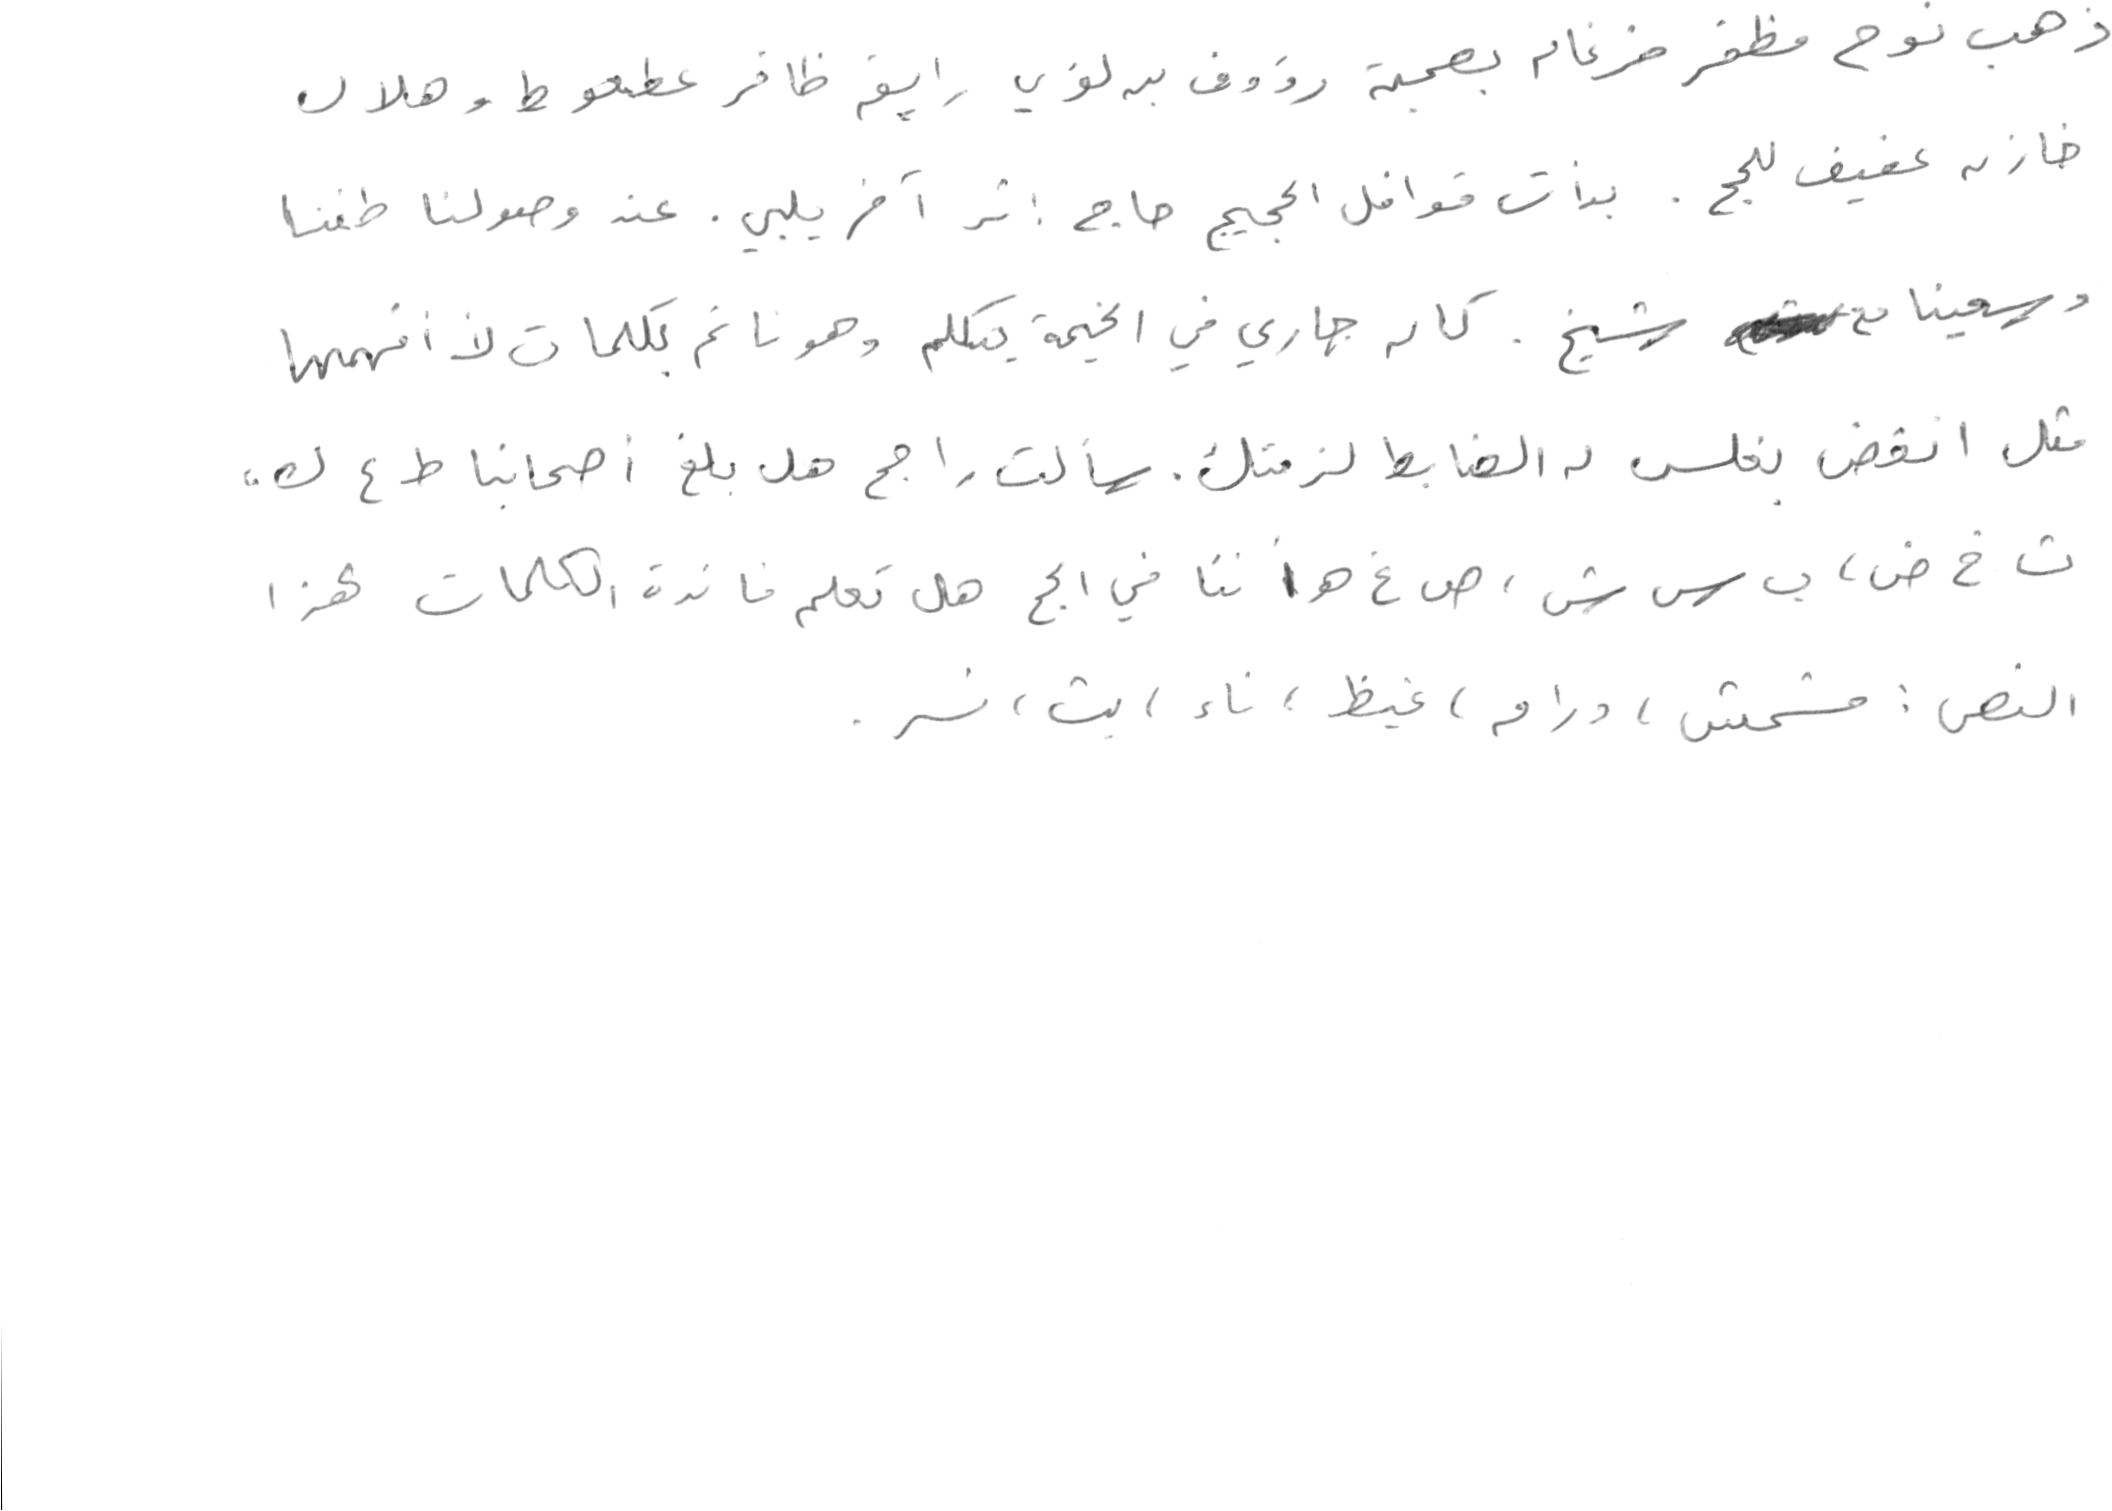 ذهب نوح مظفر ضرغام بصحبة رؤوف بن لؤي رايق ظافر عطعوط وهلال
خازن عفيف للحج . بدأت قوافل الحجيج حاج إثر آخر يلبي . عند وصولنا طفنا
وسعينا مع شيخ . كان جاري في الخيمة يتكلم وهو نائم بكلمات لا أفهمها
مثل انقض بغلس له الضابط لزمتك . سألت راجح هل بلغ أصحابنا ط ع ك ،
ث خ ض ، ب س ش ، ص غ هـ أننا في الحج هل تعلم فائدة الكلمات لهذا
النص : مشمش ، دراق ، غيظ ، ناء ، بث ، نسر .